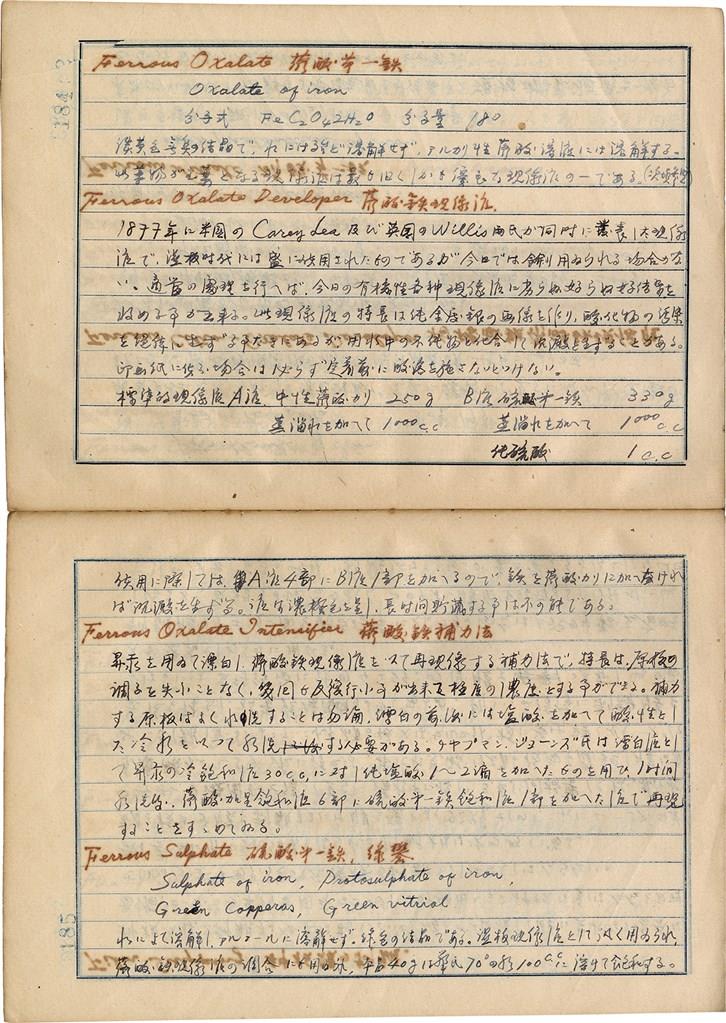 184
Ferrous Oxalate 蓚酸第一鉄
Oxalate of iron
分子式 FeC2O42H2O 分子量 180
淡黄色の結晶で、水にはほとんど溶解せず、アルカリ性蓚酸溶液には溶解する。
Ferrous Oxalate Developer 蓚酸鉄現像液
1877年に米国のCarey Lea及び英国のWillis両氏が同時に発表した現像
液で、湿板時代には盛に使用されたものであるが今日では余り用ゐられる場合がな
い。適当の処理を行へば、今日の有機性各種現像液に劣らぬ
収める事が出来る。此現像液の特長は純金属銀の画像を作り、酸化物の汚染
を絶体に生ぜず
印画紙に使ふ場合は必らず定着前に酸浴を施さないといけない。
標準的現像液 A液 中性蓚酸カリ 250g B液 硫酸第一鉄 330g
蒸溜水を加へて 1000c.c 蒸溜水を加へて 1000c.c
純硫酸 1c.c
使用に際しては、A液4部にB液1部を加へるので、鉄を蓚酸カリに加へなければ
ば沈澱を生ずる。液は濃橙色を呈し、長時間貯蔵する事は不可能である。
Ferrous Oxalate Intensifier 蓚酸鉄補力法
昇汞を用ゐて漂白し、蓚酸鉄現像液を以て再現像する補力法で、特長は、原板の
調子を失ふことなく、幾回も反復行ふ事が出来て極度の濃度とする事ができる。補力
する原板はよく水洗することは勿論、漂白の前後には塩酸を加へて酸性とし
た冷水を以って水洗する必要がある。チヤプマン、ジョーンズ氏は漂白液とし
て昇汞の冷飽和液30c.c.に対し純塩酸1〜2滴を加へたものを用ひ、1時間
水洗後、蓚酸カリ飽和液6部に硫酸第一鉄飽和液1部を加へた液で再現
することをすゝめてゐる。
Ferrous Sulphate 硫酸第一鉄, 緑礬
Sulphate of iron, Protosulphate of iron,
Green Copperas, Green vitriol
水によく溶解し、アルコールに溶解せず。緑色の結晶である。湿板現像液として汎く用ゐられ、
蓚酸鉄現像液の調合にも用ゐ、 40gは華氏70°の水100c.c.に溶けて飽和する。
185